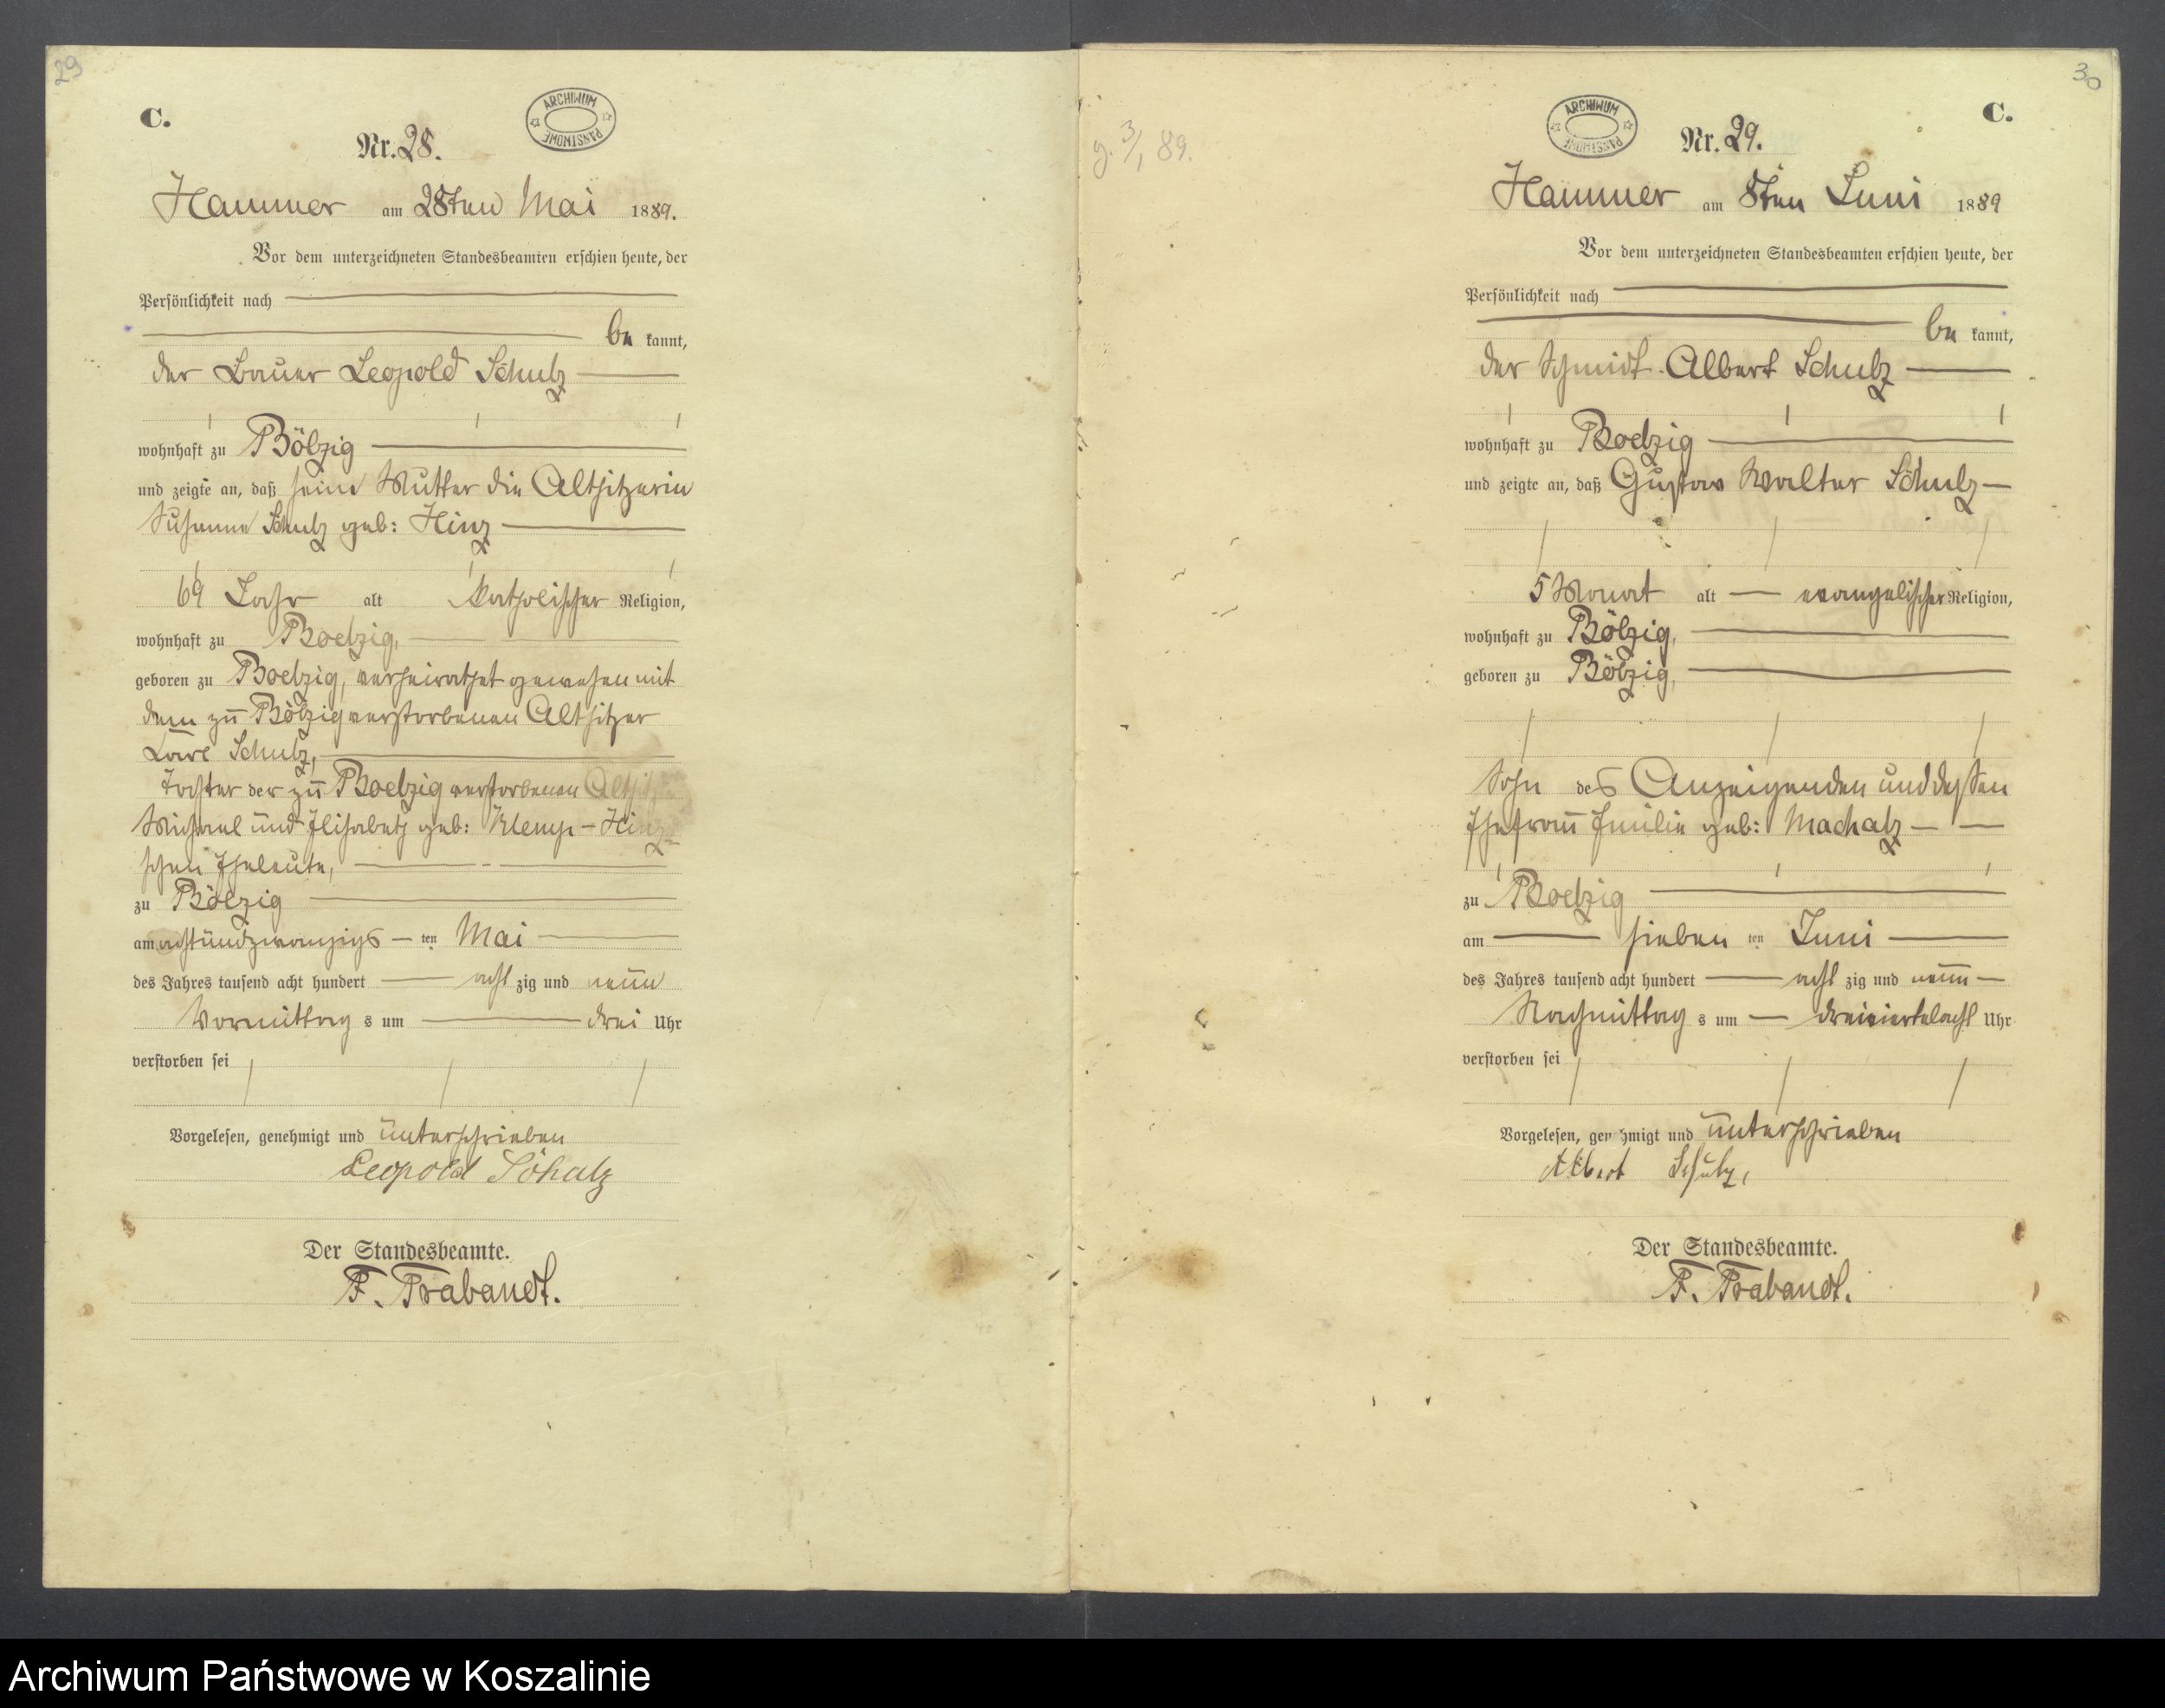 29
C.
ARCHIWUM PAŃSTWOWE
Nr. 28.
Hammer am 28ten Mai 1889.
Vor dem unterzeichneten Standesbeamten erschien heute, der
Persönlichkeit nach
be kannt,
der Bauer Leopold Schulz
wohnhaft zu Bölzig
und zeigte an, daß seine Mutter die Altsitzerin
Susanne Schulz geb: Hinz
69 Jahr alt katholischer Religion,
wohnhaft zu Boelzig,
geboren zu Boelzig, verheirathet gewesen mit
dem zu Bölzig verstorbenen Altsitzer
Carl Schulz,
Tochter der zu Boelzig verstorbenen
Michael und Elisabeth geb: Klemp - Hinz
schen Eheleute,
zu Bölzig
am achtundzwanzigs ten Mai
des Jahres tausend acht hundert acht zig und neun
Vormittag s um drei Uhr
verstorben sei
Vorgelesen, genehmigt und unterschrieben
Leopold Schulz
Der Standesbeamte.
F. Trabandt.
30
C.
ARCHIWUM PAŃSTWOWE
g. 3/1, 89.
Nr. 29.
Hammer am 8ten Juni 1889
Vor dem unterzeichneten Standesbeamten erschien heute, der
Persönlichkeit nach
be kannt,
der Schmidt Albert Schulz
wohnhaft zu Boelzig
und zeigte an, daß Gustav Walter Schulz
5 Monat alt evangelischer Religion,
wohnhaft zu Bölzig,
geboren zu Bölzig,
Sohn des Anzeigenden und dessen
Ehefrau Emilie geb: Machatz
zu Boelzig
am sieben ten Juni
des Jahres tausend acht hundert acht zig und neun
Nachmittag s um dreiviertelacht Uhr
verstorben sei
Vorgelesen, genehmigt und unterschrieben
Albert Schulz,
Der Standesbeamte.
F. Trabandt.
Archiwum Państwowe w Koszalinie